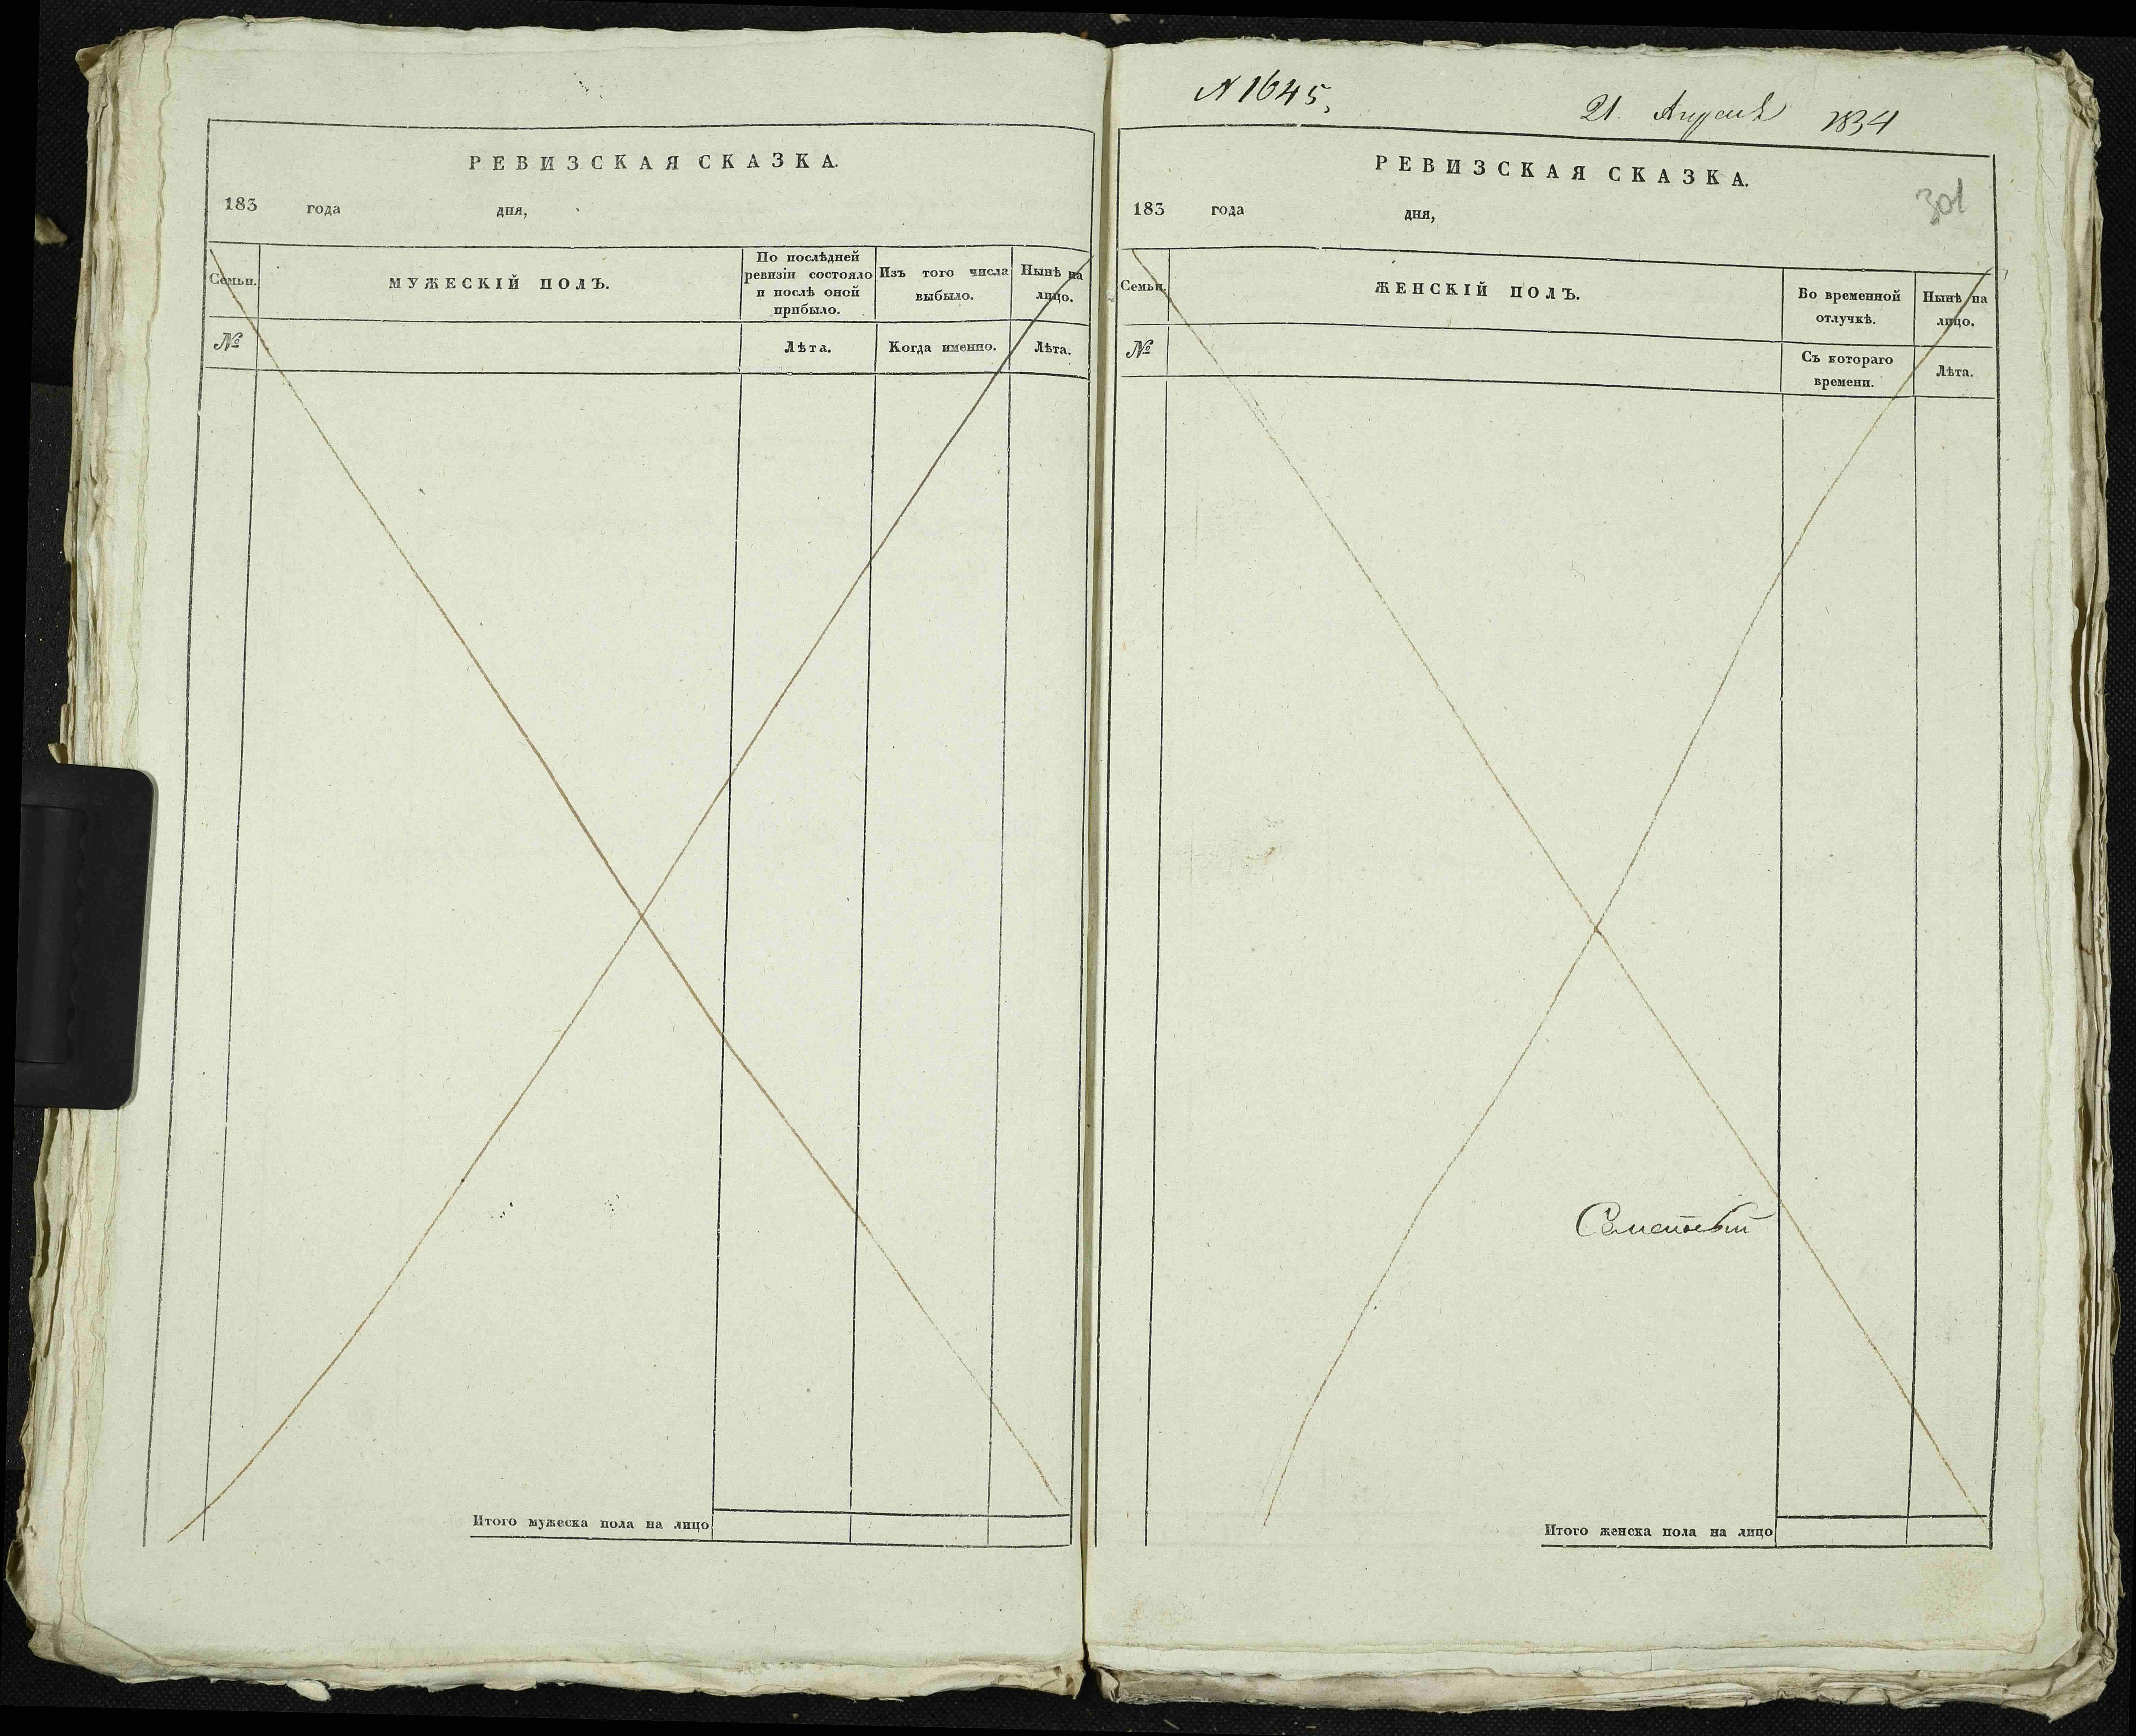 РЕВИЗСКАЯ СКАЗКА.
183 года дня,
Семьи. МУЖЕСКІЙ ПОЛЪ. По послѣдней ревизіи состояло и послѣ оной прибыло. Изъ того числа выбыло. Нынѣ на лицо.
№ Лѣта. Когда именно. Лѣта.
Итого мужеска пола на лицо
N 1645,
21. Апреля 1834
РЕВИЗСКАЯ СКАЗКА.
301
183 года дня,
Семьи. ЖЕНСКІЙ ПОЛЪ. Во временной отлучкѣ. Нынѣ на лицо.
№ Съ котораго времени. Лѣта.
Итого женска пола на лицо